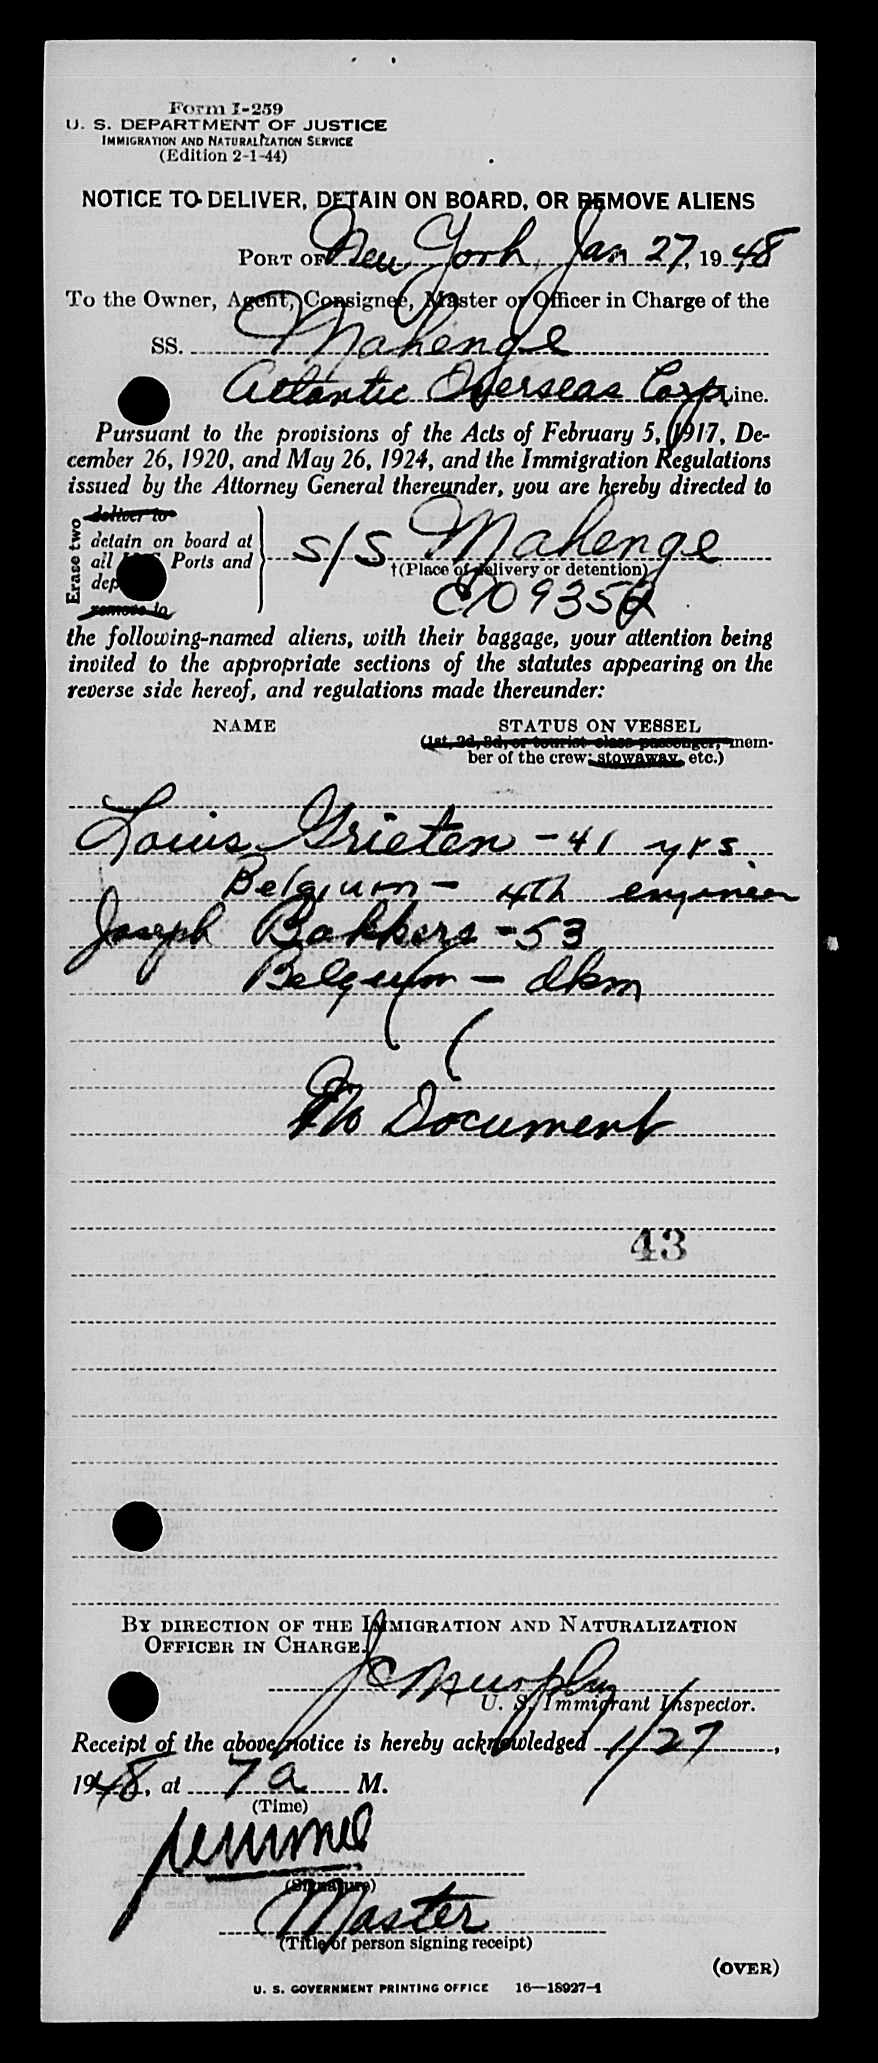 Form I-259
U. S. DEPARTMENT OF JUSTICE
IMMIGRATION AND NATURALIZATION SERVICE
(Edition 2-1-44)
NOTICE TO DELIVER, DETAIN ON BOARD, OR REMOVE ALIENS
PORT OF New York, Jan 27, 1948
To the Owner, Agent, Consignee, Master or Officer in Charge of the
SS. Mahenge
Atlantic Overseas Corp Line.
Pursuant to the provisions of the Acts of February 5, 1917, De-
cember 26, 1920, and May 26, 1924, and the Immigration Regulations
issued by the Attorney General thereunder, you are hereby directed to
Erase two
deliver to
detain on board at
all Ports and
remove to
S/S Mahenge
†(Place of delivery or detention)
the following-named aliens, with their baggage, your attention being
invited to the appropriate sections of the statutes appearing on the
reverse side hereof, and regulations made thereunder:
NAME STATUS ON VESSEL
(1st, 2d, 3d, or tourist class passenger, mem-
ber of the crew, stowaway, etc.)
Louis Grieten - 41 yrs.
Belgium - 4th engineer
Joseph Bakkers - 53
Belgium - dkm
No Document
43
BY DIRECTION OF THE IMMIGRATION AND NATURALIZATION
OFFICER IN CHARGE.
JC Murphy
U. S. Immigrant Inspector.
Receipt of the above notice is hereby acknowledged 1/27,
1948, at 7 a M.
(Time)
(Signature)
Master
(Title of person signing receipt)
(OVER)
U. S. GOVERNMENT PRINTING OFFICE 16—18927-1